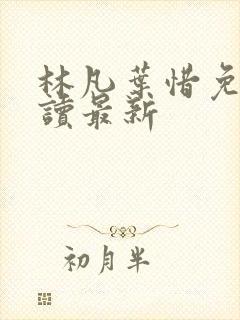 林凡葉惜免
讀最新
初月半